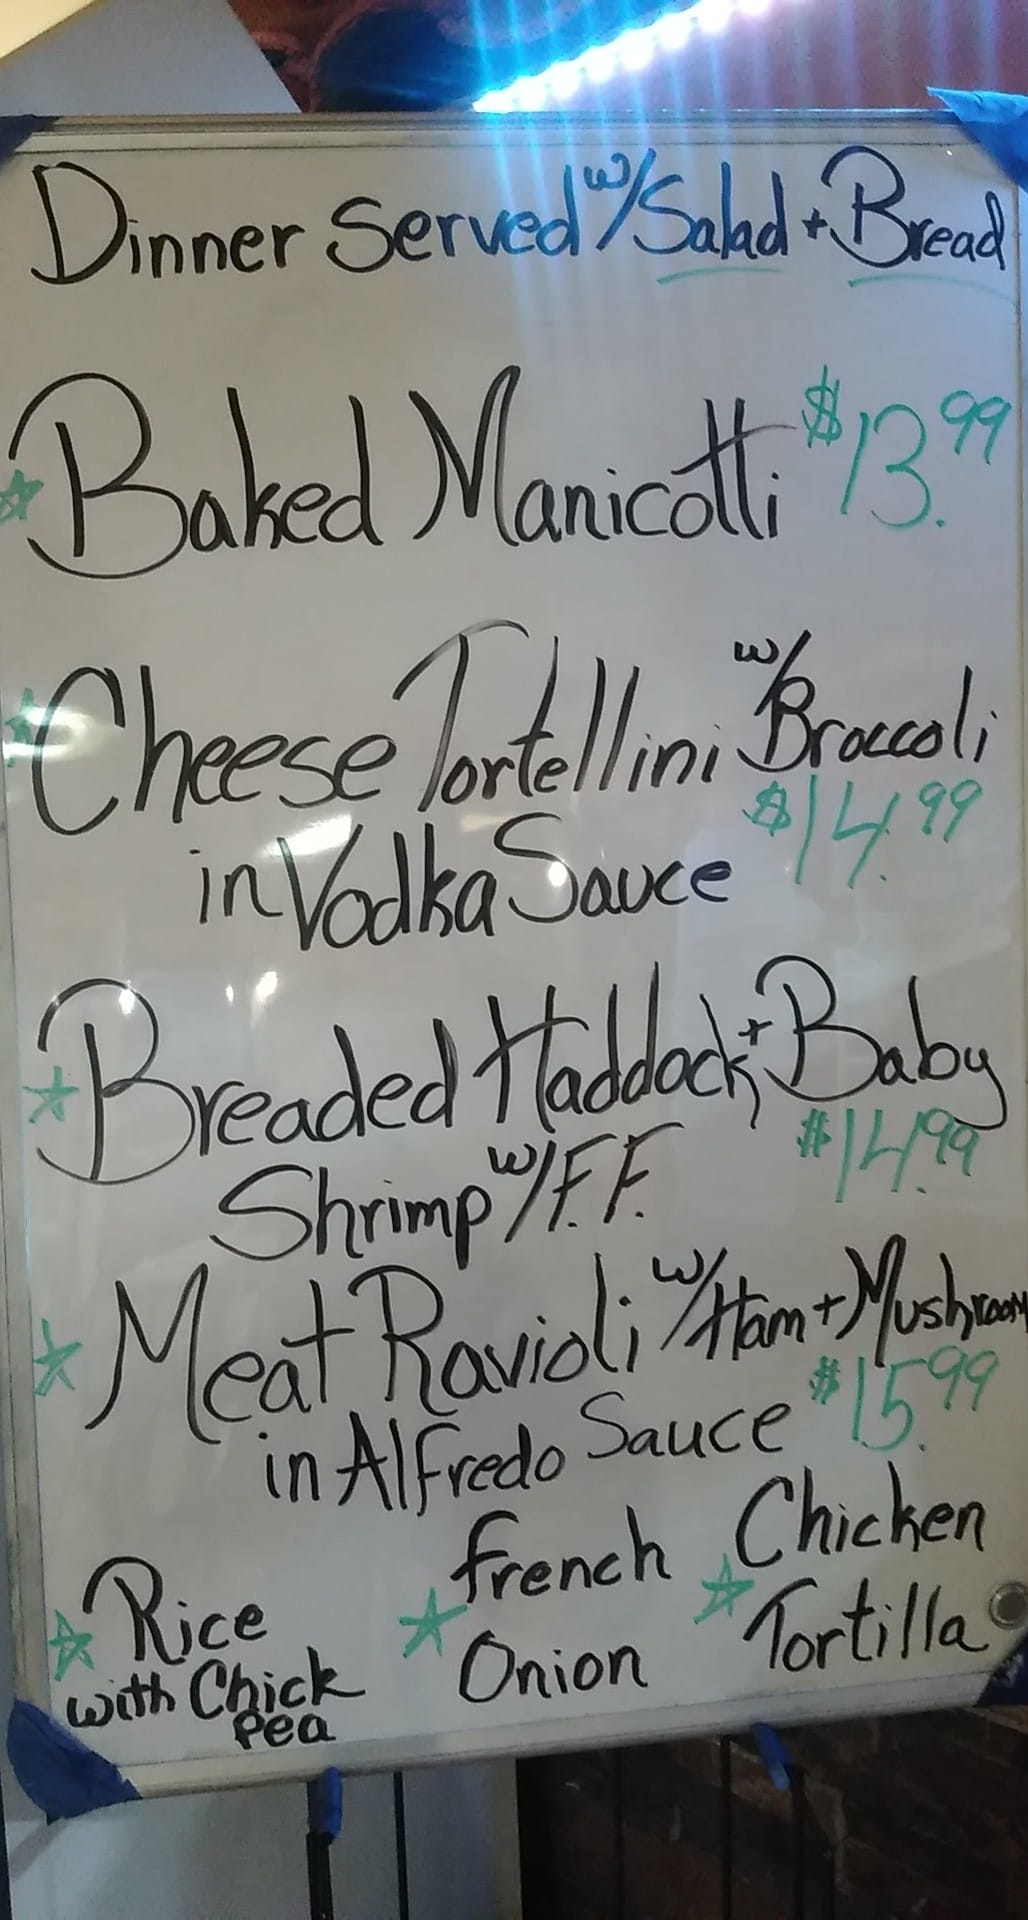 Dinner Served w/Salad + Bread
Baked Manicotti $13.99
Cheese Tortellini w/Broccoli
in Vodka Sauce $14.99
Breaded Haddock + Baby
Shrimp w/F.F. $14.99
Meat Ravioli w/Ham + Mushroom
in Alfredo Sauce $15.99
Rice
with Chick
Pea
French
Onion
Chicken
Tortilla